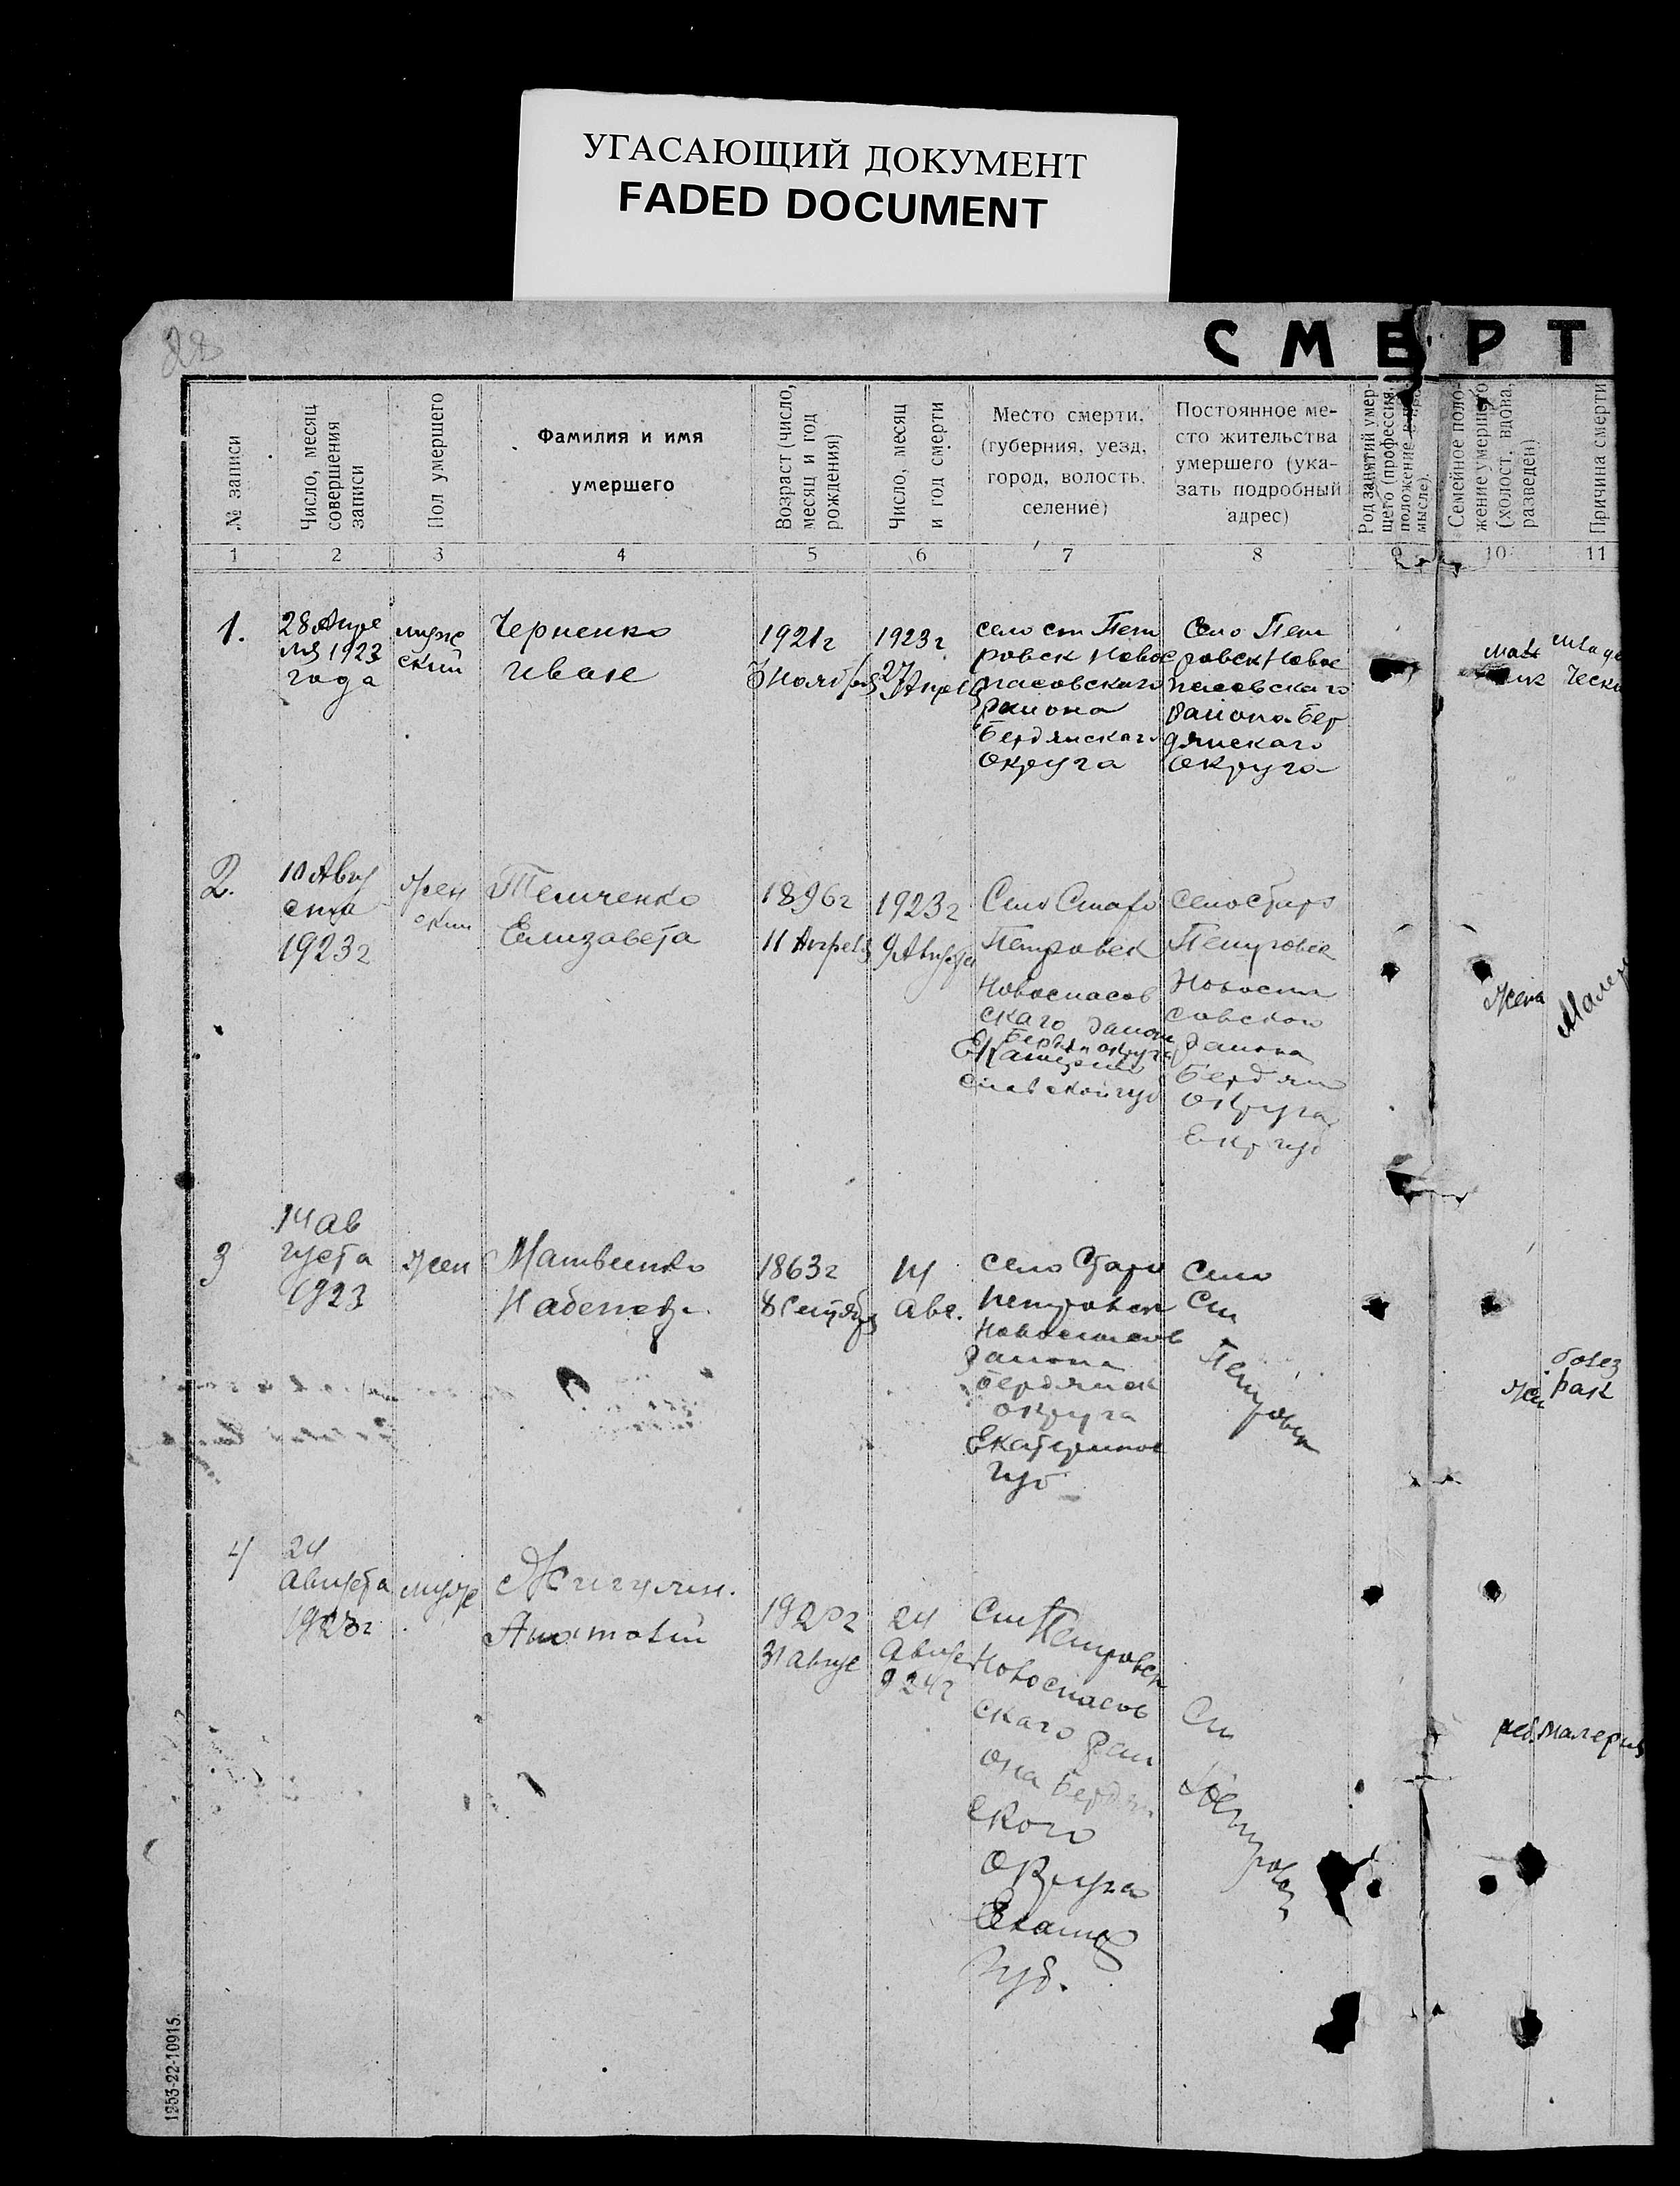 УГАСАЮЩИЙ ДОКУМЕНТ
FADED DOCUMENT
28
СМЕРТ
№ записи
Число, месяц
совершения
записи
Пол умершего
Фамилия и имя
умершего
Возраст (число,
месяц и год
рождения)
Число, месяц
и год смерти
Место смерти,
(губерния, уезд,
город, волость,
селение)
Постоянное ме-
сто жительства
умершего (ука-
зать подробный
адрес)
Род занятий умер-
щего (профессия,
положение в про
мысле).
Семейное поло-
жение умершего
(холост, вдова,
разведен)
Причина смерти
1 2 3 4 5 6 7 8 9 10 11
1.
28 Апре
ля 1923
года
муже
ский
Черненко
Иван
1921г
Ноября
1923г
27 Апреля
село ст Пет
ровск Новос
пасовского
района
Бердянскаго
округа
Село Пет
ровск Новос
пасовскаго
района Бер
дянскаго
округа
2.
10 Авгу
ста
1923г
жен
ский
Темченко
Елизавета
1896г
11 Апреля
1923г
9 Августа
Село Старо
Петровск
Новоспасов
скаго район
Бердян округа
Екатерино
славской губ
село Старо
Петровск
Новоспа
совского
района
Бердян
округа
Екр губ
жена
3
14 ав
густа
1923
жен
Матвиенко
1863г
8 Сентября
14
Авг.
село Старо
Петровск
Новоспасов
района
Бердянск
округа
Екатеринос
губ
Село
Ст
Петровск
жен
болез
рак
4
24
Августа
1923г
муже
Жигулин.
31 Авгус
24
Август
924г
Ст Петровск
Новоспасов
скаго рай
она Бердян
ского
округа
Екатер
Губ.
Ст
Петровск
реб. малерия
1253-22-10915.